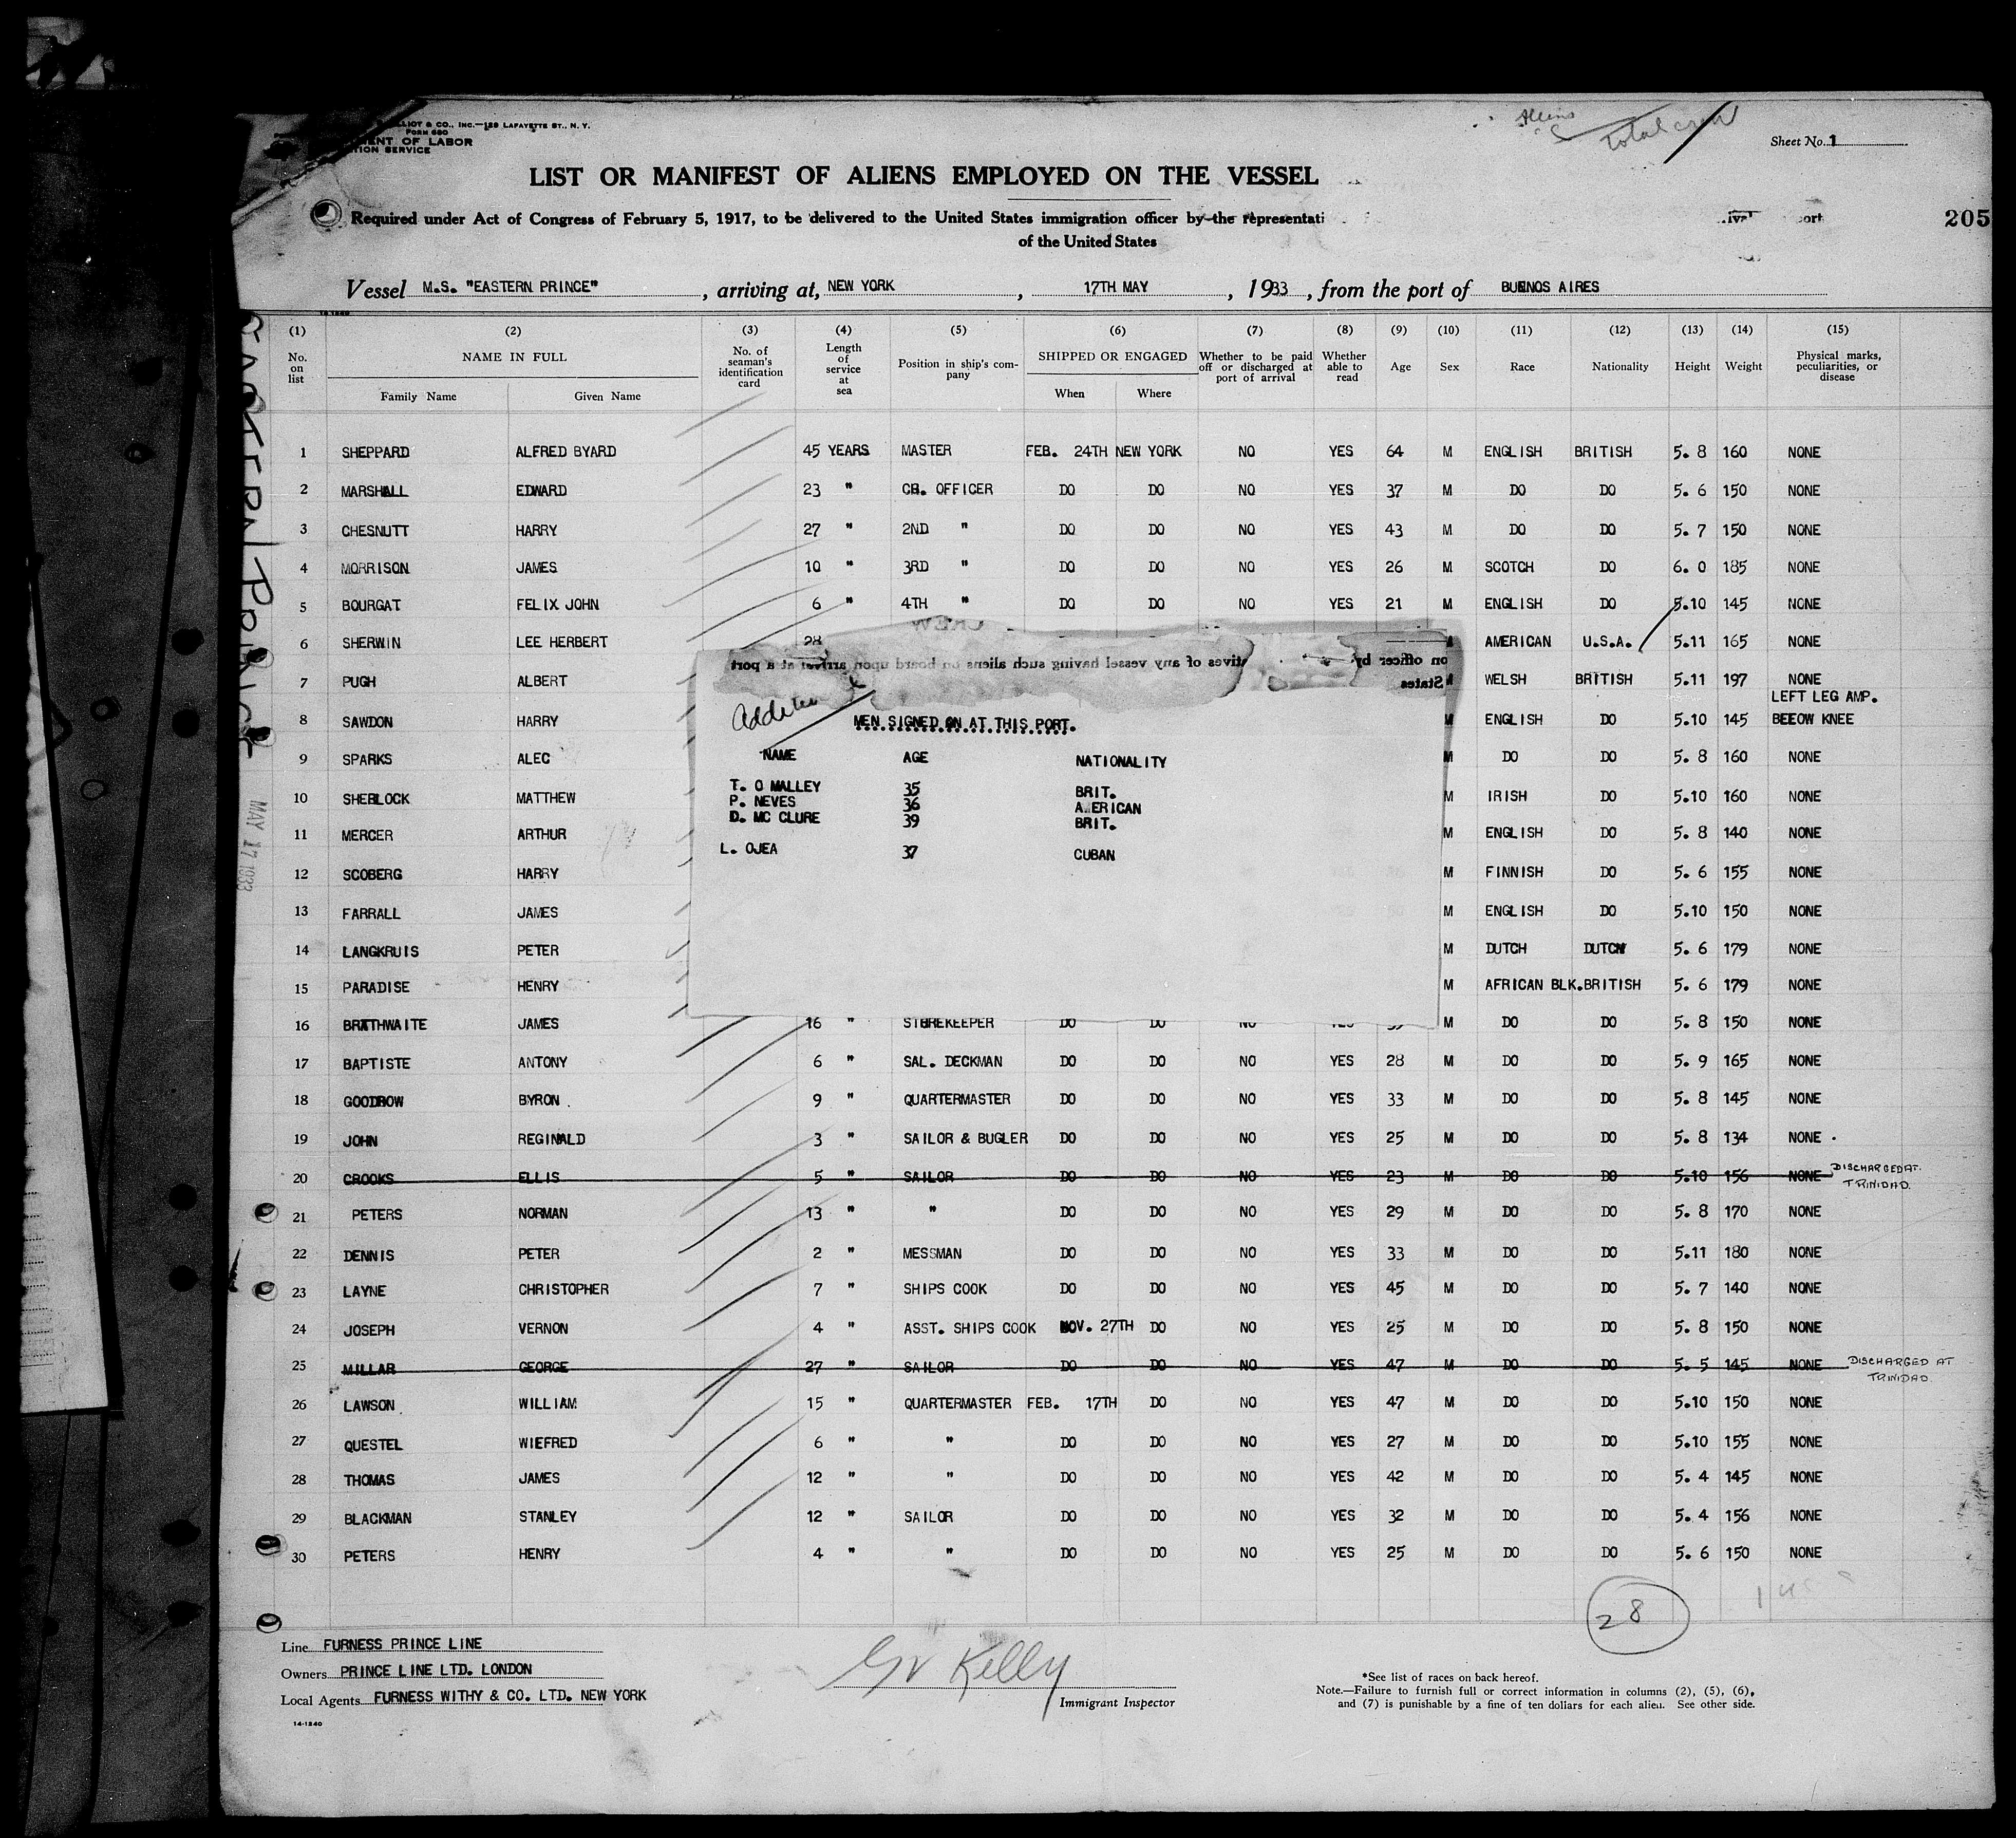 LLIOT & CO., INC.—129 LAFAYETTE ST., N. Y.
FORM 680
ENT OF LABOR
TION SERVICE
Aliens
Total crew
Sheet No. 1
LIST OR MANIFEST OF ALIENS EMPLOYED ON THE VESSEL
Required under Act of Congress of February 5, 1917, to be delivered to the United States immigration officer by the representati
of the United States
205
Vessel M.S. "EASTERN PRINCE", arriving at, NEW YORK, 17TH MAY, 1933, from the port of BUENOS AIRES
(1) (2) (3) (4) (5) (6) (7) (8) (9) (10) (11) (12) (13) (14) (15)
No. on list NAME IN FULL Family Name Given Name No. of seaman's identification card Length of service at sea Position in ship's company SHIPPED OR ENGAGED When Where Whether to be paid off or discharged at port of arrival Whether able to read Age Sex Race Nationality Height Weight Physical marks, peculiarities, or disease
1 SHEPPARD ALFRED BYARD 45 YEARS MASTER FEB. 24TH NEW YORK NO YES 64 M ENGLISH BRITISH 5. 8 160 NONE
2 MARSHALL EDWARD 23 " CH. OFFICER DO DO NO YES 37 M DO DO 5. 6 150 NONE
3 CHESNUTT HARRY 27 " 2ND " DO DO NO YES 43 M DO DO 5. 7 150 NONE
4 MORRISON JAMES 10 " 3RD " DO DO NO YES 26 M SCOTCH DO 6. 0 185 NONE
5 BOURGAT FELIX JOHN 6 " 4TH " DO DO NO YES 21 M ENGLISH DO 5.10 145 NONE
6 SHERWIN LEE HERBERT 28 AMERICAN U.S.A. 5.11 165 NONE
7 PUGH ALBERT WELSH BRITISH 5.11 197 NONE
8 SAWDON HARRY M ENGLISH DO 5.10 145 LEFT LEG AMP. BELOW KNEE
9 SPARKS ALEC M DO DO 5. 8 160 NONE
10 SHERLOCK MATTHEW M IRISH DO 5.10 160 NONE
11 MERCER ARTHUR M ENGLISH DO 5. 8 140 NONE
12 SCOBERG HARRY M FINNISH DO 5. 6 155 NONE
13 FARRALL JAMES M ENGLISH DO 5.10 150 NONE
14 LANGKRUIS PETER M DUTCH DUTCH 5. 6 179 NONE
15 PARADISE HENRY M AFRICAN BLK. BRITISH 5. 6 179 NONE
16 BRATHWAITE JAMES 16 " STOREKEEPER DO DO NO YES M DO DO 5. 8 150 NONE
17 BAPTISTE ANTONY 6 " SAL. DECKMAN DO DO NO YES 28 M DO DO 5. 9 165 NONE
18 GOODROW BYRON . 9 " QUARTERMASTER DO DO NO YES 33 M DO DO 5. 8 145 NONE
19 JOHN REGINALD 3 " SAILOR & BUGLER DO DO NO YES 25 M DO DO 5. 8 134 NONE
20 CROOKS ELLIS 5 " SAILOR DO DO NO YES 23 M DO DO 5.10 156 NONE DISCHARGED AT. TRINIDAD.
21 PETERS NORMAN 13 " " DO DO NO YES 29 M DO DO 5. 8 170 NONE
22 DENNIS PETER 2 " MESSMAN DO DO NO YES 33 M DO DO 5.11 180 NONE
23 LAYNE CHRISTOPHER 7 " SHIPS COOK DO DO NO YES 45 M DO DO 5. 7 140 NONE
24 JOSEPH VERNON 4 " ASST. SHIPS COOK NOV. 27TH DO NO YES 25 M DO DO 5. 8 150 NONE
25 MILLAR GEORGE 27 " SAILOR DO DO NO YES 47 M DO DO 5. 5 145 NONE DISCHARGED AT TRINIDAD.
26 LAWSON WILLIAM 15 " QUARTERMASTER FEB. 17TH DO NO YES 47 M DO DO 5.10 150 NONE
27 QUESTEL WIEFRED 6 " " DO DO NO YES 27 M DO DO 5.10 155 NONE
28 THOMAS JAMES 12 " " DO DO NO YES 42 M DO DO 5. 4 145 NONE
29 BLACKMAN STANLEY 12 " SAILOR DO DO NO YES 32 M DO DO 5. 4 156 NONE
30 PETERS HENRY 4 " " DO DO NO YES 25 M DO DO 5. 6 150 NONE
MEN SIGNED ON AT THIS PORT.
NAME AGE NATIONALITY
T. O MALLEY 35 BRIT.
P. NEVES 36 AMERICAN
D. MC CLURE 39 BRIT.
L. OJEA 37 CUBAN
EASTERN PRINCE
MAY 17 1933
28
Line FURNESS PRINCE LINE
Owners PRINCE LINE LTD. LONDON
Local Agents FURNESS WITHY & CO. LTD. NEW YORK
14-1240
Kelly
Immigrant Inspector
*See list of races on back hereof.
Note.—Failure to furnish full or correct information in columns (2), (5), (6),
and (7) is punishable by a fine of ten dollars for each alien. See other side.